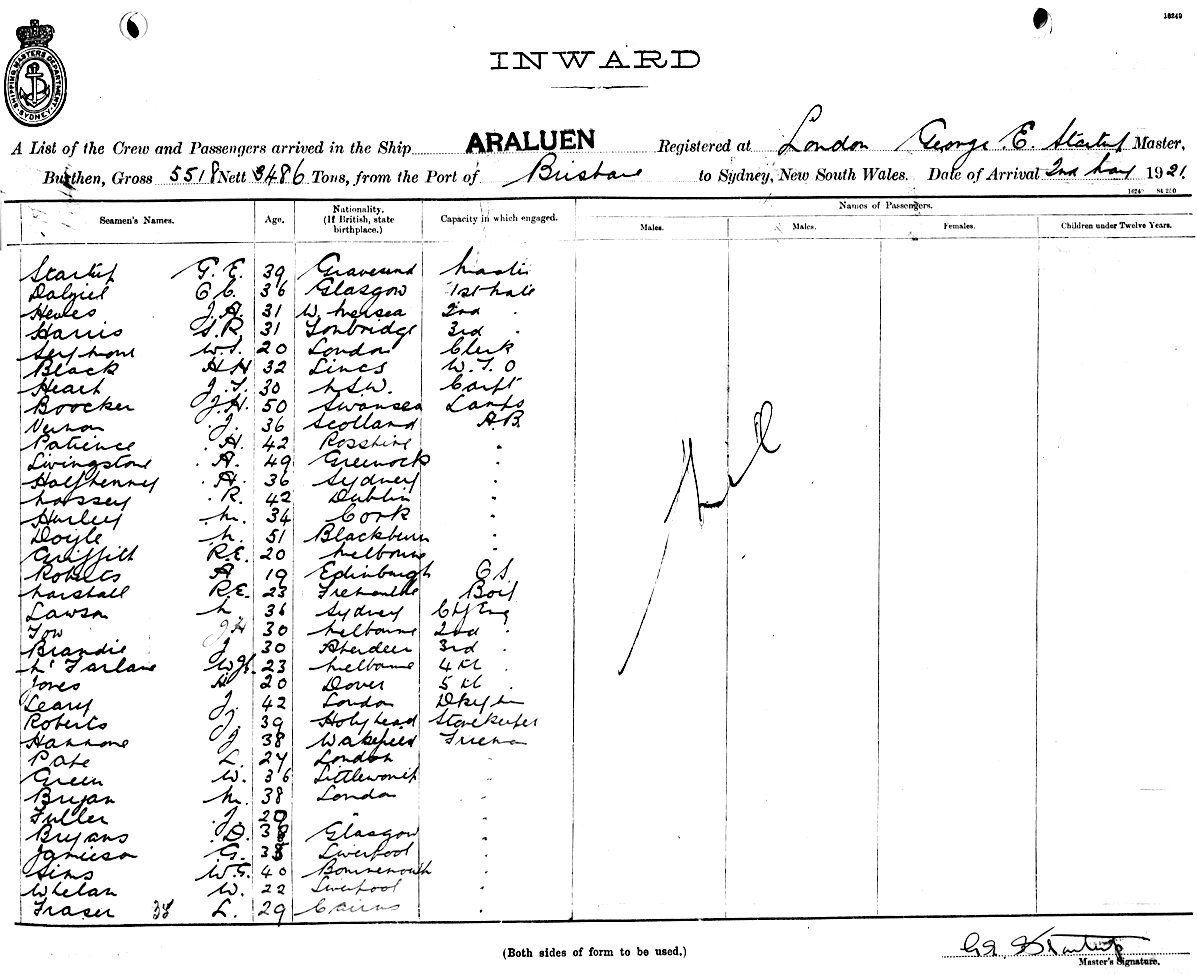 16249
SHIPPING MASTERS DEPARTMENT SYDNEY
INWARD
A List of the Crew and Passengers arrived in the Ship ARALUEN Registered at London George E. Startup Master,
Burthen, Gross 5518 Nett 3486 Tons, from the Port of Brisbane to Sydney, New South Wales. Date of Arrival 2nd May 1921
Seamen's Names. Age. Nationality. (If British, state birthplace.) Capacity in which engaged. Names of Passengers.
Males. Males. Females. Children under Twelve Years.
Startup G. E. 39 Gravesend Master
Dalziel C. C. 36 Glasgow 1st Mate
Hewes J. A. 31 W. Mersea 2nd "
Harris S. R. 31 Tonbridge 3rd "
Seymour W. S. 20 London Clerk
Black H H 32 Lincs W. T. O
Heart J. T. 30 N.S.W. Carpt
Boocker J. H. 50 Swansea Lamps
Vernon J. 36 Scotland A B
Patience A. 42 Rosshire "
Livingstone A. 49 Greenock "
Halfpenney A. 36 Sydney "
Massey R. 42 Dublin "
Hurley M. 34 Cork "
Doyle M. 51 Blackburn "
Griffith R. E. 20 Melbourne "
Roberts A 19 Edinburgh O S
Marshall R. E. 23 Fremantle Boy
Lawson 36 Sydney Chf Eng
Tow J H 30 Melbourne 2nd "
Brandie J. 30 Aberdeen 3rd "
McFarlane W. J. 23 Melbourne 4th "
Jones H 20 Dover 5th "
Leary J. 42 London Dkeyman
Roberts J. 39 Holyhead Storekeeper
Hannone J 38 Wakefield Fireman
Pate L. 27 London "
Green W. 36 Littleworth "
Bryan M. 38 London "
Fuller J. " "
Bryans D. Glasgow "
Jamieson G. Liverpool "
Sims W. G. 40 Bournemouth "
Whelan W. 22 Liverpool "
Fraser 38 L. 29 Cairns "
Nil
(Both sides of form to be used.)
G E Startup
Master's Signature.